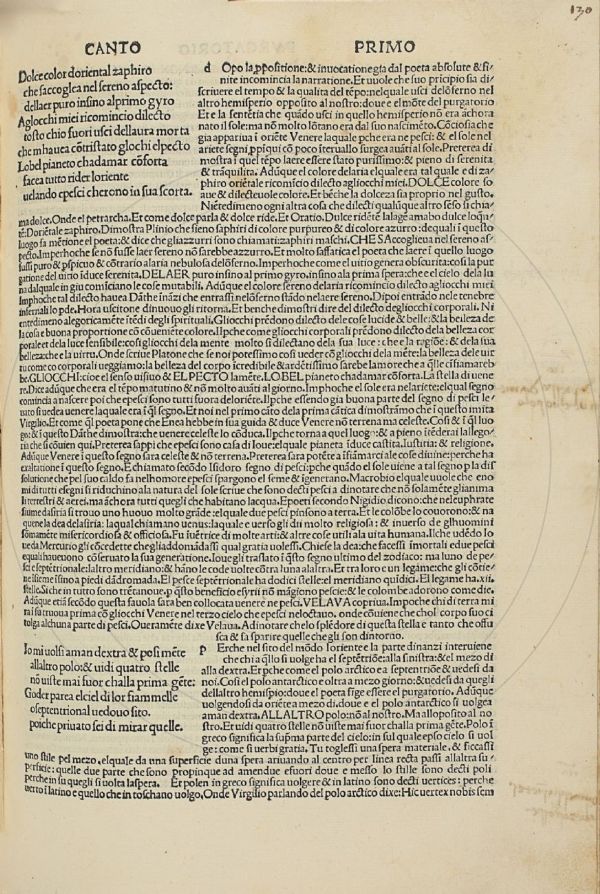 130
CANTO PRIMO
Dolce color doriental zaphiro
che saccoglea nel sereno aspecto:
dellaer puro insino al primo gyro
Agliocchi miei ricomincio dilecto
tosto chio fuori usci dellaura morta
che mhauea cõtristato gliocchi el pecto
Lo bel pianeto chadamar cõforta
facea tutto rider loriente
uelando e pesci cherono in sua scorta.
d Opo la ꝓpositione: & inuocatione gia dal poeta absolute & fi-
nite incomincia la narratione. Et uuole che suo pricipio sia di-
scriuere el tempo & la qualita del tẽpo: nelquale usci delõferno nel
altro hemisperio opposito al nostro: doue e el mõte del purgatorio
Et e la sentẽtia che quãdo usci in quello hemisperio nõ era achora
nato il sole: ma nõ molto lõtano era dal suo nascimẽto. Cõciosia che
gia appariua i oriẽte Venere laquale ꝑche era ne pesci: & el sole nel
ariete segni ꝓpiqui cõ poco iteruallo surgea auãti al sole. Preterea di
mostra i quel tẽpo laere essere stato purissimo: & pieno di serenita
& trãquilita. Adũque el colore delaria elquale era tal quale e di za-
phiro oriẽtale ricomicio dilecto agliocchi miei. DOLCE colore so
aue & dilecteuole colore. Et bẽche la dolceza sia proprio nel gusto.
Niẽtedimeno ogni altra cosa che dilecti qualũque altro sẽso si chia-
ma dolce. Onde el petrarcha. Et come dolce parla & dolce ride. Et Oratio. Dulce ridẽtẽ lalagẽ amabo dulce loquẽ-
tẽ: Doriẽtale zaphiro. Dimostra Plinio che sieno saphiri di colore purpureo & di colore azurro: de quali i questo
luogo fa mẽtione el poeta: & dice che gliazzurri sono chiamati: zaphiri maschi. CHE SAccogliea nel sereno as-
pecto. Imperhoche se nõ fusse laer sereno nõ sarebbe azurro. Et molto saffatica el poeta che laere i quello luogo
fussi puro & ꝑspicuo & cõtrario alaria nebulosa delõferno. Imperhoche come el uitio genera obscurita: cosi la pur
gatione del uitio iduce serenita. DELAER puro insino al primo gyro. insino ala prima spera: che e el cielo dela lu
na dalquale in giu comiciano le cose mutabili. Adũque el colore sereno delaria ricomicio dilecto agliocchi miei
Imphoche tal dilecto hauea Dãthe inãzi che entrassi nelõferno stãdo nelaere sereno. Dipoi entrãdo nele tenebre
infernali lo pde. Hora uscitone dinuouo gli ritorna. Et benche dimostri dire del dilecto degliocchi corporali. Ni
entedimeno alegoricamẽte itẽde degli spirituali. Gliocchi prẽdono dilecto dele cose lucide & belle: & la belleza de
la cosa e buona proportione cõ cõueniẽte colore. Ilꝑche come gliocchi corporali prẽdono dilecto dela belleza cor
porale et dela luce sensibile: cosi gliocchi dela mente molto si dilectano dela sua luce: che e la ragiõe: & dela sua
belleza: che e la uirtu. Onde scriue Platone che se noi potessimo cosi ueder cõ gliocchi dela mẽte: la belleza dele uir
tu come co corporali ueggiamo: la belleza del corpo icredibile & ardẽtissimo sarebe lamore che a q̃lle cifiamareb
be. GLIOCCHI: cioe el senso uisiuo & EL PECTO la mẽte. LO BEL pianeto chadamar cõforta. La stella di uene
re. Dice adũque che era el tẽpo matutino & nõ molto auãti al giorno. Imphoche el sole era nelariete: elqual segno
comincia a nascere poi che epesci sono tutti fuora deloriẽte. Ilꝑche essendo gia buona parte del segno di pesci le-
uato si uedea uenere laquale era i q̃l segno. Et noi nel primo cãto dela prima cãtica dimostrãmo che i questo imita
Virgilio. Et come q̃l poeta pone che Enea hebbe in sua guida & duce Venere nõ terrena ma celeste. Cosi & i q̃l luo
go: & i questo Dãthe dimostra: che uenere celeste lo cõduca. Ilꝑche torna a quel luogo: & a pieno itẽderai lallego-
ria che si cõuien qui. Preterea sappi che epesci sono casa di Ioue: elqual pianeta iduce castita. Iustitia: & religione.
Adũque Venere i questo segno sara celeste & nõ terrena. Preterea sara potẽte a ifiamarci ale cose diuine: perche ha
exaltatione i questo segno. E chiamato secõdo Isidoro segno di pesci: ꝑche quãdo el sole uiene a tal segno ꝑ la dis
solutione che pel suo caldo fa nelhomore epesci spargono el seme & igenerano. Macrobio elquale uuole che ono
mi di tutti segni si riduchino ala natura del sole scriue che sono decti pesci a dinotare che nõ solamẽte gli anima
li terrestri & aerei. ma ãchora tutti quegli che habitano lacqua. Epoeti secondo Nigidio dicono: che nel euphrate
fiume dasiria si trouo uno huouo molto grãde: elquale due pesci pinsono a terra. Et le colõbe lo couorono: & na
que ne la dea dela siria: laqual chiamano uenus: laquale e uerso gli dii molto religiosa: & inuerso de glhuomini
sõmamẽte misericordiosa & officiosa. Fu iuẽtrice di molte arti: & altre cose utili ala uita humana. Ilche udẽdo Io
ue da Mercurio gli cõcedette che gli addomãdassi qual gratia uolessi. Chiese la dea: che facessi imortali e due pesci
equali haueuono cõseruato la sua generatione. Ioue gli traslato i q̃sto segno ultimo del zodiaco: ma luno de pe-
sci e septẽtrionale: laltro meridiano: & hãno le code uolte cõtra luna alaltra. Et tra loro e un legame: che gli cõtie-
ne īsieme isino a piedi dãdromada. El pesce septẽtrionale ha dodici stelle: el meridiano quĩdici. El legame ha .xii.
stelle. Si che in tutto sono trẽtanoue. ꝑ q̃sto beneficio esyrii nõ mãgiono pescie: & le colombe adorono come die.
Adũque etiã secõdo questa fauola sara ben collocata uenere ne pesci. VELAVA copriua. Impoche chi di terra mi
ra i su truoua prima cõ gliocchi Venere nel terzo cielo che epesci nelottauo. onde cõuiene che chol corpo suo ci
tolga alchuna parte di pesci. Oueramẽte dixe Velaua. A dinotare che lo splẽdore di questa stella e tanto che offu
sca & fa sparire quelle che gli son dintorno.
Io mi uolsi aman dextra & posi mẽte
allaltro polo: & uidi quatro stelle
nõ uiste mai fuor challa prima gẽte:
Goder parea el ciel di lor fiammelle
o septentrional uedouo sito.
poi che priuato sei di mirar quelle.
P Erche nel sito del mõdo lorientee la parte dinanzi interuiene
che chi a q̃llo si uolge ha el septẽtriõe: alla sinistra: & el mezo di
alla dextra. Et ꝑche come el polo arctico e a septentriõe & uedesi da
noi. Cosi el polo antarctico e uolto a mezo giorno: & uedesi da quegli
dellaltro hemispio: doue el poeta fige essere el purgatorio. Adũque
uolgendosi da oriẽte a mezo di. doue e el polo antarctico si uolgea
a man dextra. ALLALTRO polo: nõ al nostro. Ma al opposito al no-
stro. Et uidi quatro stelle nõ uiste mai fuor challa prima gẽte. Polo i
greco significa la supma parte del cielo: in sul quale epso cielo si uol
ge: come si uerbi gratia. Tu toglessi una spera materiale. & ficcassi
uno stile pel mezo. elquale da una superficie duna spera ariuando al centro per linea recta passi allaltra su-
perficie: quelle due parte che sono propinque ad amendue fuori doue e messo lo stile sono decti poli
perche in su quegli si uolta laspera. Et polen in greco significa uolgere & in latino sono decti uertices: perche
uerto i latino e quello che in toschano uolgo. Onde Virgilio parlando del polo arctico dixe: Hic uertex nobis sem